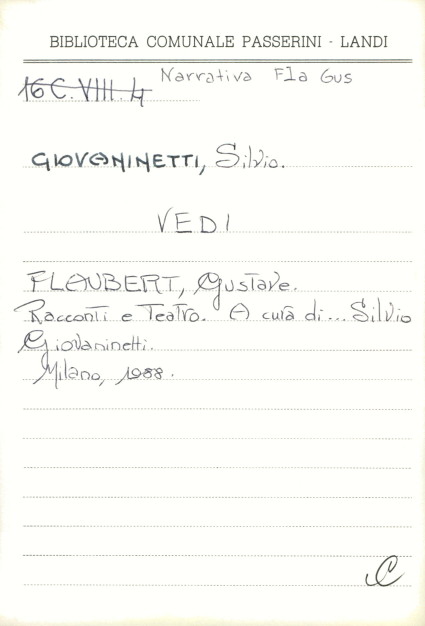 BIBLIOTECA COMUNALE PASSERINI - LANDI
Narrativa Fla Gus
16 C. VIII. 4
GIOVANINETTI, Silvio.
VEDI
FLAUBERT, Gustave.
Racconti e Teatro. A cura di... Silvio
Giovaninetti.
Milano, 1988.
C